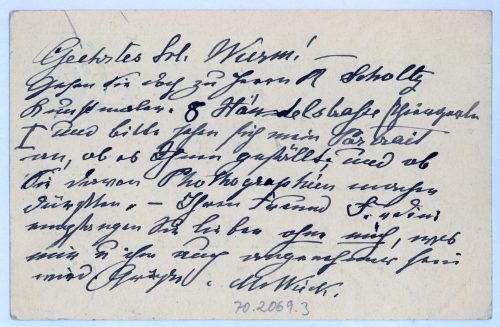 Geehrtes Frl. Wurm! —
Gehen Sie doch zu Herrn R Scholtz
Kunstmaler. 8 Händelstraße (Thiergarten
I und bitte sehen sich mein Portrait
an, ob es Ihnen gefällt, und ob
Sie davon Photographien machen
dürften. — Ihren Freund
empfangen Sie lieber ohne mich, was
mir u ihm auch angenehmer sein
wird. Grüße.
70.2069.3